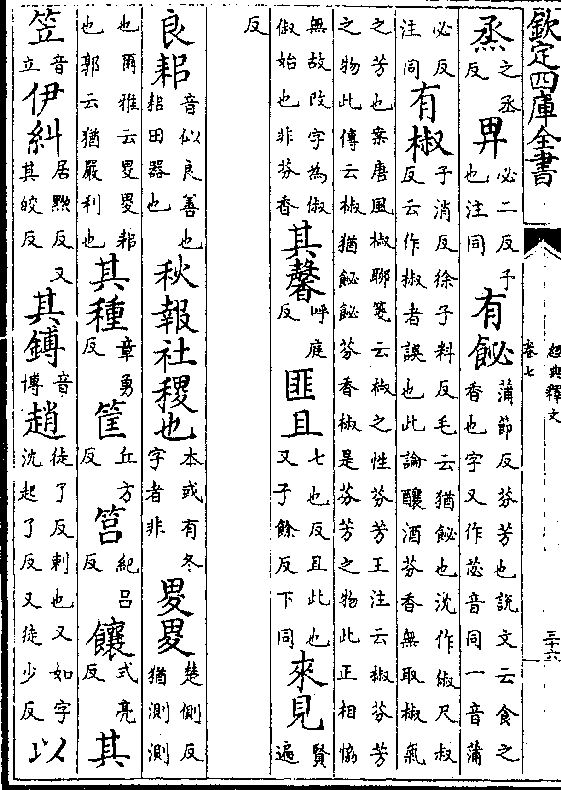 欽定四庫全書
經典釋文
卷七
三十六
烝之丞反畀必二反予也注同有飶蒲節反芬芳也說文云食之香也字又作苾音同一音蒲
必反注同有椒子消反徐子料反毛云猶飶也沈作俶尺叔反云作椒者誤也此論釀酒芬香無取椒氣
之芳也案唐風椒聊箋云椒之性芬芳王注云椒芬芳之物此傳云椒猶飶飶芬香椒是芬芳之物此正相協
無故改字為俶俶始也非芬香其馨呼庭反匪且七也反且此也又子餘反下同來見賢遍
反
良耜音似良善也耜田器也秋報社稷也本或有冬字者非畟畟楚側反猶測測
也爾雅云畟畟耜也郭云猶嚴利也其種章勇反筐丘方反筥紀呂反饟式亮反其
笠音立伊糾居黝反又其皎反其鎛音博趙徒了反刺也又如字沈起了反又徒少反以